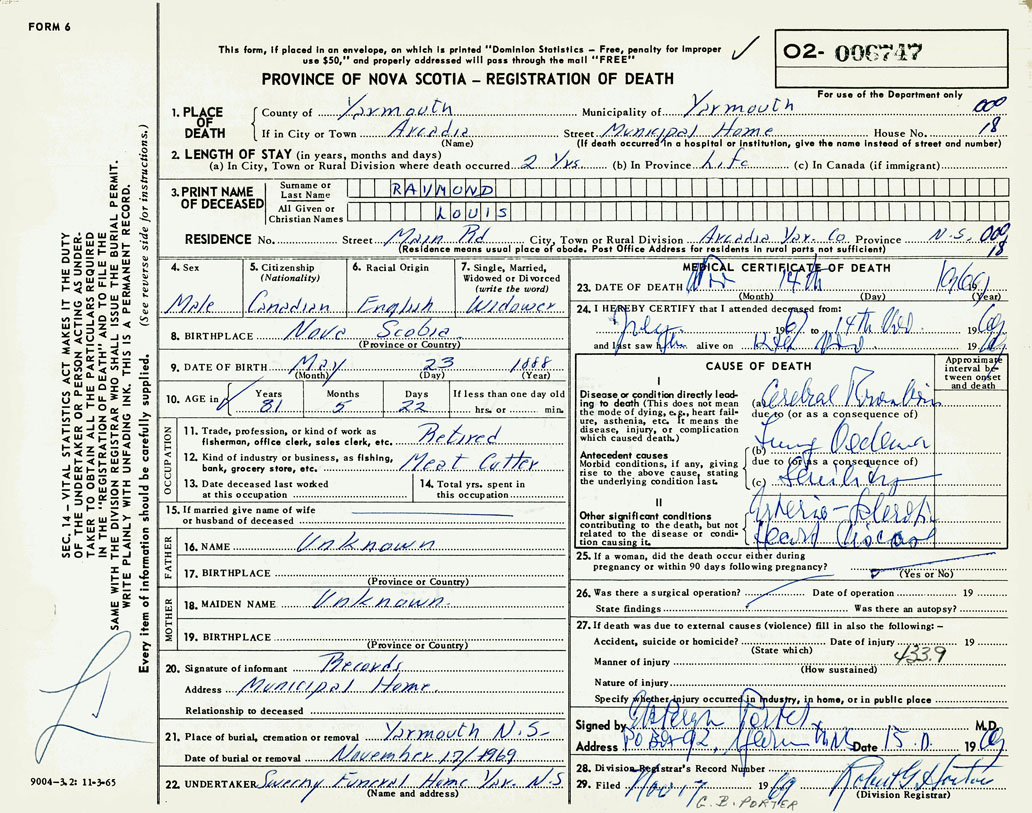 FORM 6
This form, if placed in an envelope, on which is printed "Dominion Statistics – Free, penalty for improper
use $50," and properly addressed will pass through the mail "FREE"
02- 006747
For use of the Department only
PROVINCE OF NOVA SCOTIA – REGISTRATION OF DEATH
1. PLACE OF DEATH
County of Yarmouth Municipality of Yarmouth 000
If in City or Town Arcadia Street Municipal Home House No. 18
(Name) (If death occurred in a hospital or institution, give the name instead of street and number)
2. LENGTH OF STAY (in years, months and days)
(a) In City, Town or Rural Division where death occurred 2 Yrs (b) In Province Life (c) In Canada (if immigrant)
3. PRINT NAME OF DECEASED
Surname or Last Name RAYMOND
All Given or Christian Names LOUIS
RESIDENCE No. Street Main Rd City, Town or Rural Division Arcadia Yar. Co. Province N.S. 009
(Residence means usual place of abode. Post Office Address for residents in rural parts not sufficient) 18
4. Sex
Male
5. Citizenship
(Nationality)
Canadian
6. Racial Origin
English
7. Single, Married,
Widowed or Divorced
(write the word)
Widower
8. BIRTHPLACE Nova Scotia
(Province or Country)
9. DATE OF BIRTH May 23 1888
(Month) (Day) (Year)
10. AGE in Years Months Days If less than one day old
81 5 22 hrs. or min.
OCCUPATION
11. Trade, profession, or kind of work as
fisherman, office clerk, sales clerk, etc. Retired
12. Kind of industry or business, as fishing,
bank, grocery store, etc. Meat Cutter
13. Date deceased last worked
at this occupation
14. Total yrs. spent in
this occupation
15. If married give name of wife
or husband of deceased
FATHER
16. NAME Unknown
17. BIRTHPLACE
(Province or Country)
MOTHER
18. MAIDEN NAME Unknown.
19. BIRTHPLACE
(Province or Country)
20. Signature of informant Records
Address Municipal Home.
Relationship to deceased
21. Place of burial, cremation or removal Yarmouth N.S
Date of burial or removal November 17/1969
22. UNDERTAKER Sweeny Funeral Home Yar. N.S
(Name and address)
MEDICAL CERTIFICATE OF DEATH
23. DATE OF DEATH 14th
(Month) (Day) (Year)
24. I HEREBY CERTIFY that I attended deceased from:
19 to 14th 19
and last saw him alive on 19
CAUSE OF DEATH
Approximate
interval be-
tween onset
and death
I
Disease or condition directly lead-
ing to death (This does not mean
the mode of dying, e.g., heart fail-
ure, asthenia, etc. It means the
disease, injury, or complication
which caused death.)
(a) Cerebral Thrombosis
due to (or as a consequence of
(b) Lung Oedema
Antecedent causes
Morbid conditions, if any, giving
rise to the above cause, stating
the underlying condition last.
due to (or as a consequence of)
(c) Senility
II
Other significant conditions
contributing to the death, but not
related to the disease or condi-
tion causing it.
Arterio-Sclerotic
Heart Disease
25. If a woman, did the death occur either during
pregnancy or within 90 days following pregnancy?
(Yes or No)
26. Was there a surgical operation? Date of operation 19
State findings Was there an autopsy?
27. If death was due to external causes (violence) fill in also the following: –
Accident, suicide or homicide? Date of injury 19
(State which) 433.9
Manner of injury
(How sustained)
Nature of injury
Specify whether injury occurred in Industry, in home, or in public place
Signed by Porter M.D.
Address PO Box 92, Date 15 19 69
28. Division Registrar's Record Number
29. Filed Nov 17 1969 Robert G Horton
(Division Registrar)
G. B. PORTER
SEC. 14 – VITAL STATISTICS ACT MAKES IT THE DUTY
OF THE UNDERTAKER OR PERSON ACTING AS UNDER-
TAKER TO OBTAIN ALL THE PARTICULARS REQUIRED
IN THE "REGISTRATION OF DEATH" AND TO FILE THE
SAME WITH THE DIVISION REGISTRAR WHO SHALL ISSUE THE BURIAL PERMIT.
WRITE PLAINLY WITH UNFADING INK. THIS IS A PERMANENT RECORD.
Every item of information should be carefully supplied. (See reverse side for instructions.)
9004-3.2: 11-3-65